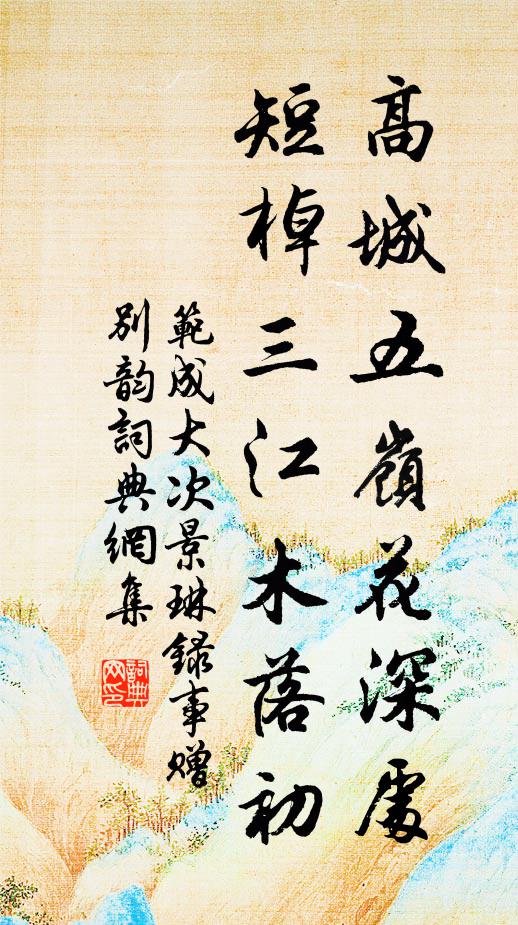 高城五嶺花深處
短棹三江木落初
範成大次景琳録事贈
別韵詞典網集
詞典网印